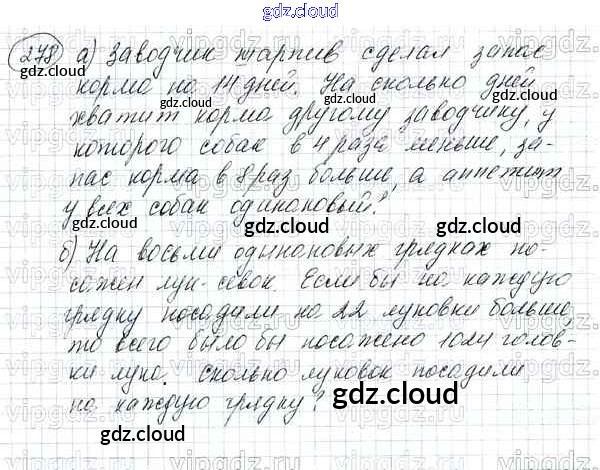 gdz.cloud
278 а) Заводчик таргив сделал запас
корма на 14 дней. На сколько дней
хватит корма другому заводчику, у
которого собак в 4 раза меньше, за-
пас корма в 8 раз больше, а аппетит
у всех собак одинаковый?
б) На восьми одинаковых грядках по-
сажен лук-севок. Если бы на каждую
грядку посадили на 22 луковки больше,
то всего было бы посажено 1024 голов-
ки лука. Сколько луковок посадили
на каждую грядку?
gdz.cloud